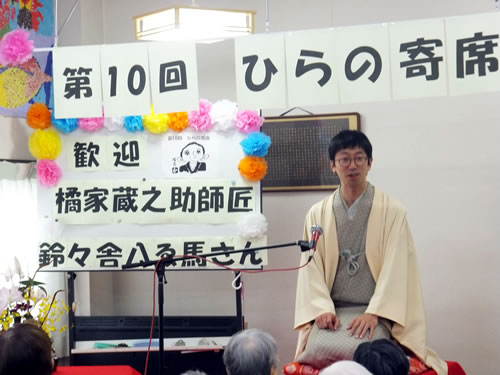 第10回 ひらの寄席
歓迎
橘家蔵之助師匠
鈴々舎八ゑ馬さん